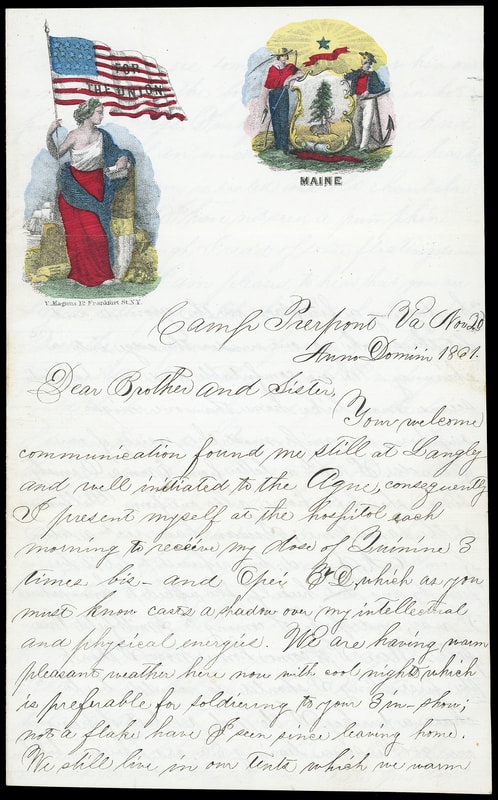 FOR
THE UNION
MAINE
C. Magnus 12 Frankfort St. N.Y.
Camp Pierpont Va Nov 20
Anno Domini 1861.
Dear Brother and Sister,
Your welcome
communication found me still at Langly
and well initiated to the Ague, consequently
I present myself at the hospitol each
morning to receive my dose of Quinine 3
times bis – and which as you
must know casts a shadow over my intellectual
and physical energies. We are having warm
pleasant weather here now with cool nights which
is preferable for soldiering to your 3 in – snow;
not a flake have I seen since leaving home.
We still live in our tents which we warm